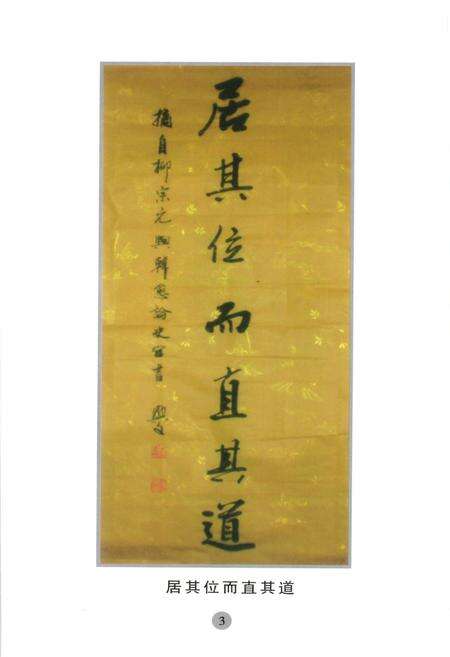 居其位而直其道
摘自柳宗元與韓愈論史官書
居其位而直其道
3